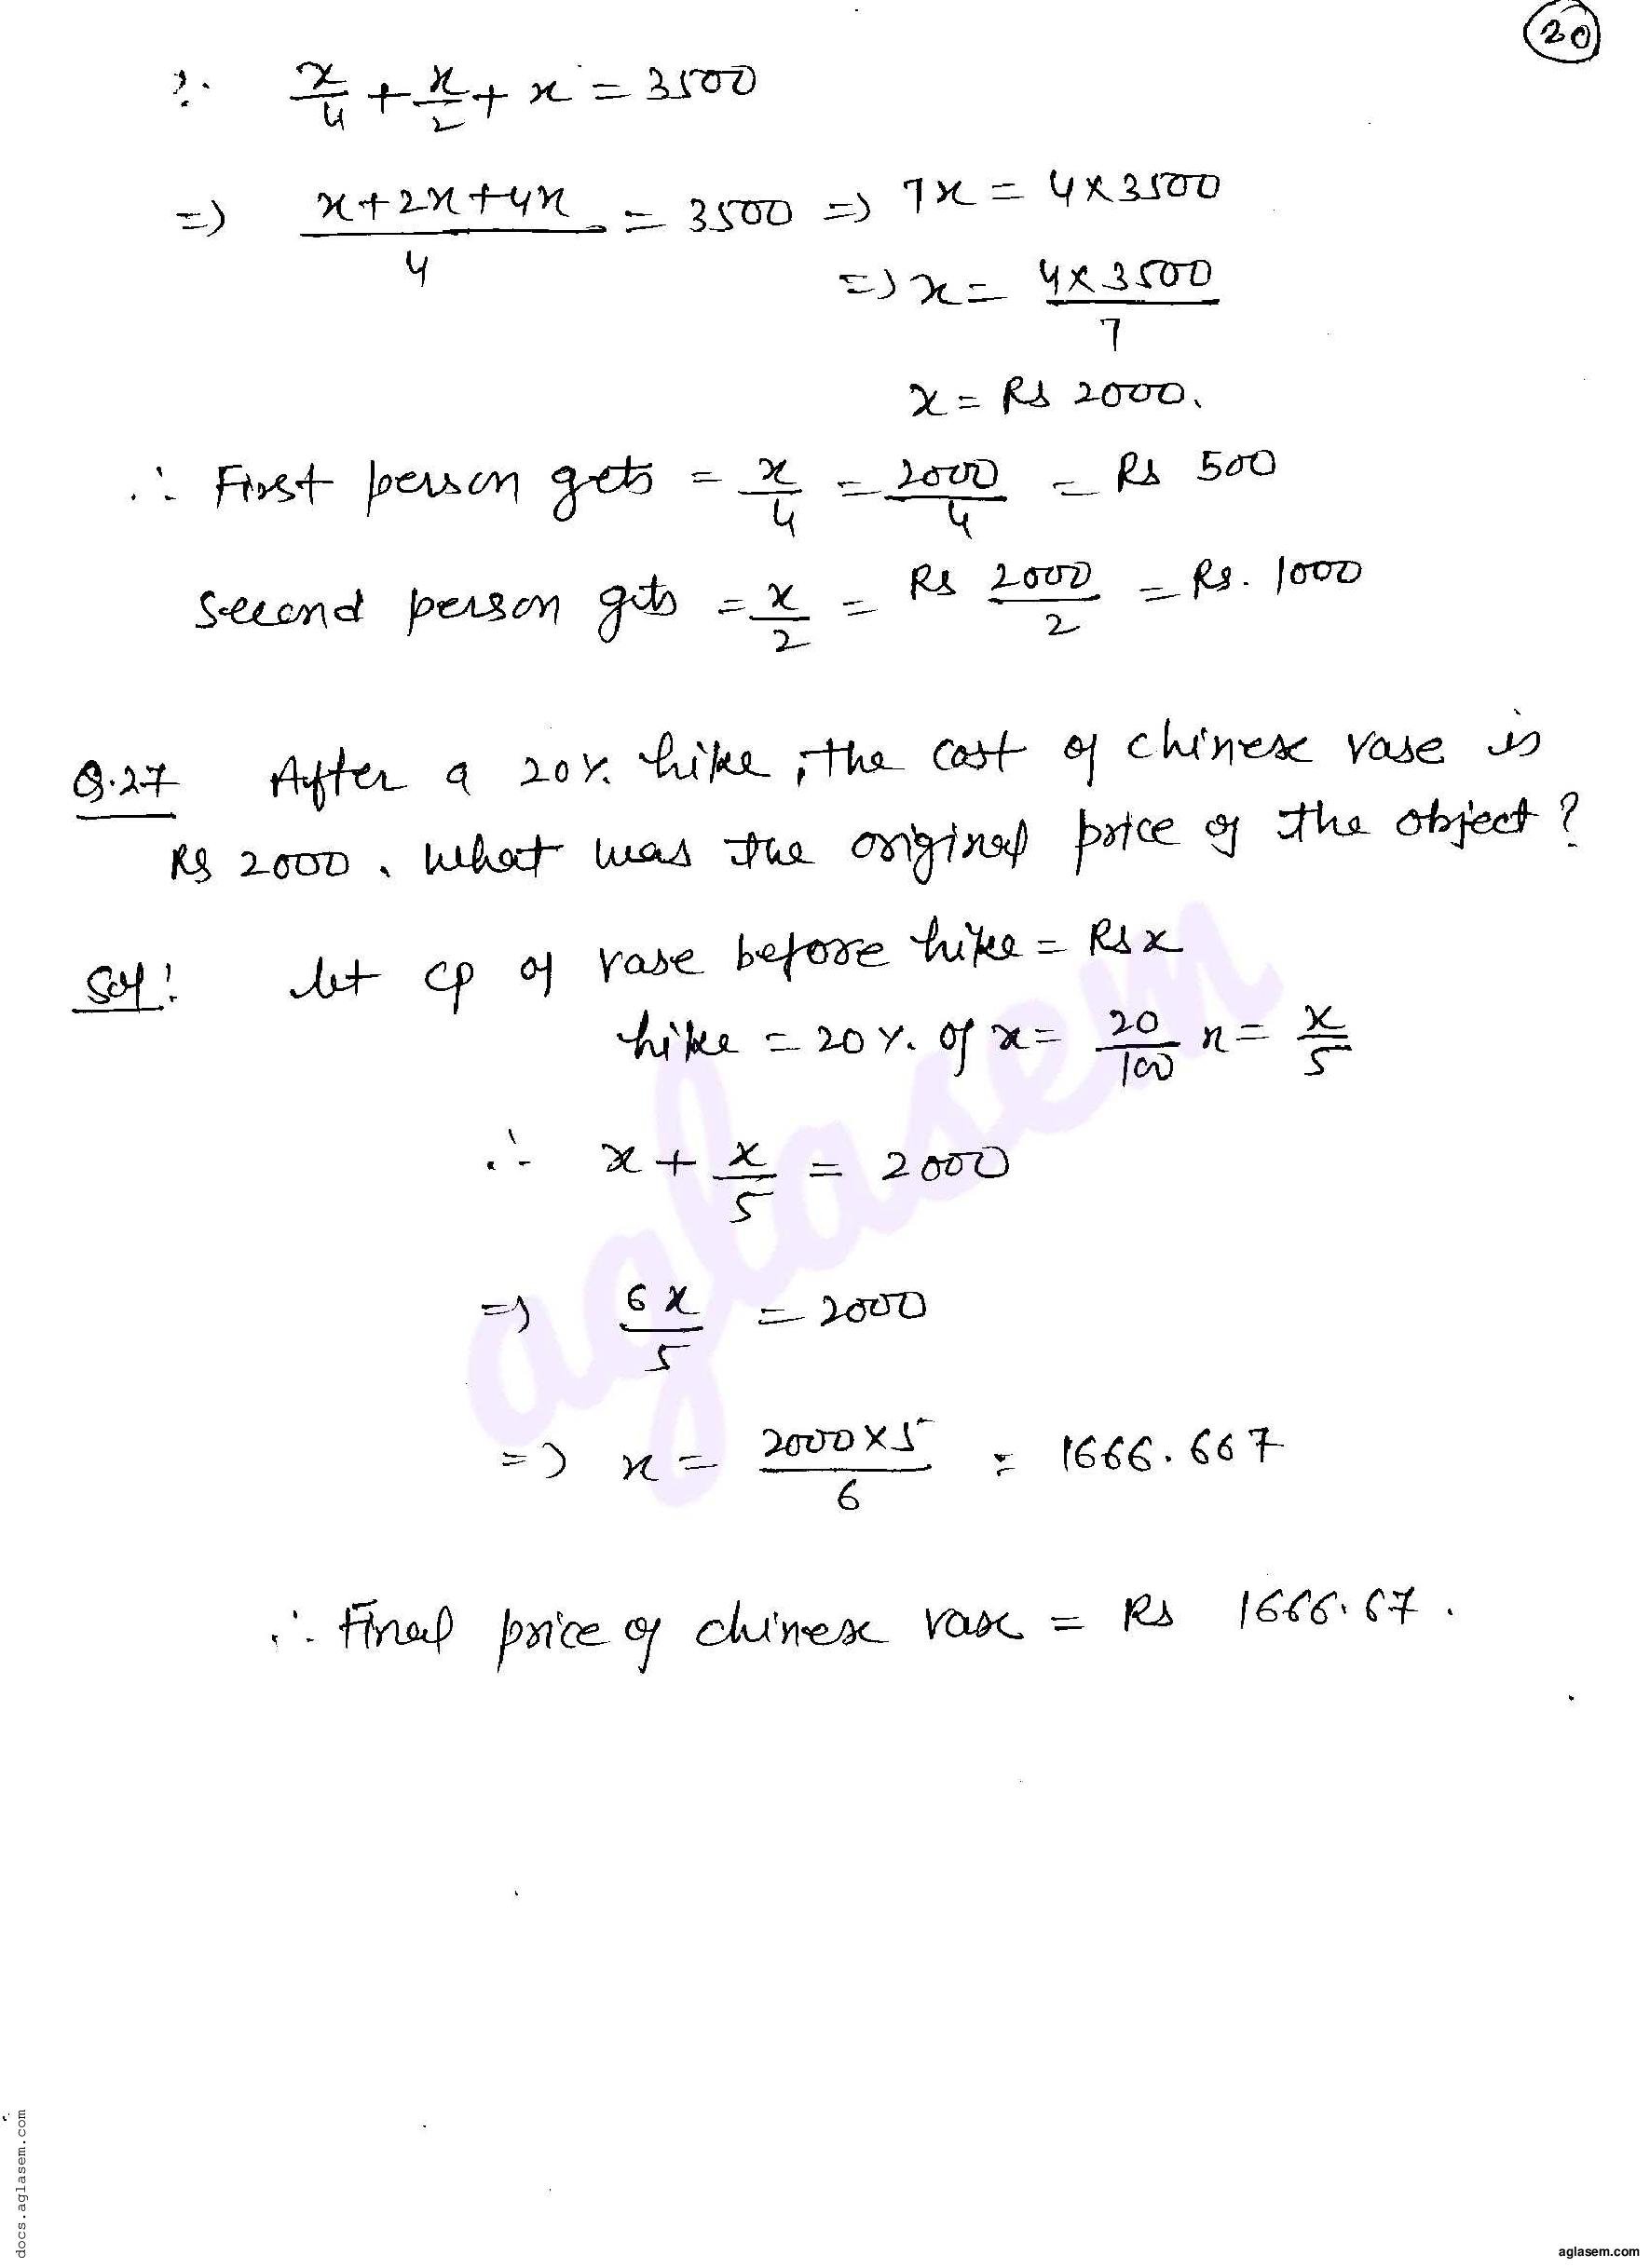 20
∵ x/4 + x/2 + x = 3500
=> (x+2x+4x)/4 = 3500 => 7x = 4×3500
=> x = (4×3500)/7
x = Rs 2000.
∴ First person gets = x/4 = 2000/4 = Rs 500
Second person gets = x/2 = Rs 2000/2 = Rs. 1000
Q.27 After a 20% hike, the cost of chinese vase is
Rs 2000. What was the original price of the object?
Sol: let CP of vase before hike = Rs x
hike = 20% of x = 20/100 x = x/5
∴ x + x/5 = 2000
=> 6x/5 = 2000
=> x = (2000×5)/6 = 1666.667
∴ Final price of chinese vase = Rs 1666.67.
aglasem
docs.aglasem.com
aglasem.com